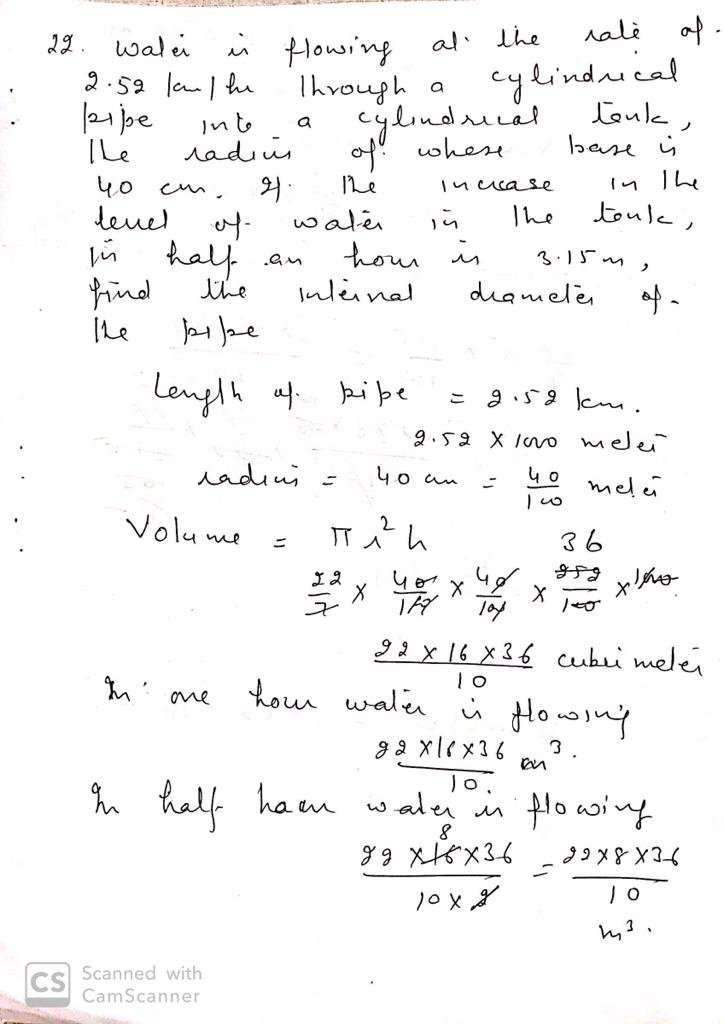 22. Water is flowing at the rate of
2.52 km/hr through a cylindrical
pipe into a cylindrical tank,
the radius of whose base is
40 cm. If the increase in the
level of water in the tank,
in half an hour is 3.15 m,
find the internal diameter of
the pipe
Length of pipe = 2.52 km.
2.52 X 1000 meter
radius = 40 cm = 40/100 meter
Volume = π r² h
22/7 x 40/100 x 40/100 x 252/100 x 1000 36
22 x 16 x 36/10 cubic meter
In one hour water is flowing
22 x 16 x 36/10 m³.
In half hour water is flowing
22 x 16 x 36/10 x 2 8 = 22 x 8 x 36/10
m³.
CS Scanned with
CamScanner